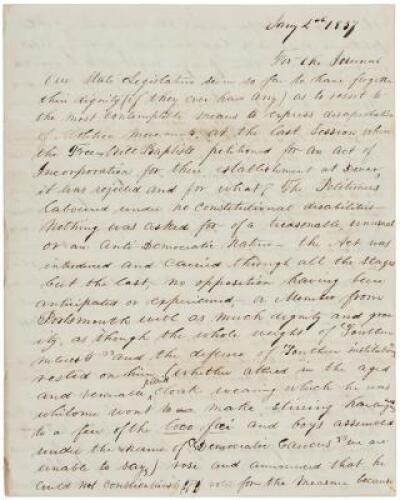 Jany 2nd 1837
For the Journal
Our State Legislature seem so far to have forgotten
their dignity (if they ever have any) as to resort to
the most contemptible means to express disapprobation
of Abolition movements. at the last Session when
the Free-Will Baptists petitioned for an act of
Incorporation for their establishment at Dover,
it was rejected and for what? The Petitioners
laboured under no constitutional disabilities—
Nothing was asked for of a treasonable, unusual
or an Anti Democratic nature— the Act was
introduced and carried through all the stages
but the last, no opposition having been
anticipated or experienced— a Member from
Portsmouth with as much dignity and grav
ity, as though the whole weight of "Southern
interests" and the defence of Southern institutions
rested on him, (whether attired in the aged
and venerable plaid cloak wearing which he was
whilome wont to make stirring harangues
to a few of the Loco foci and boys assembled
under the name of "Democratic Caucus" we are
unable to say) rose and announced that he
could not conscientiously vote for the measure because